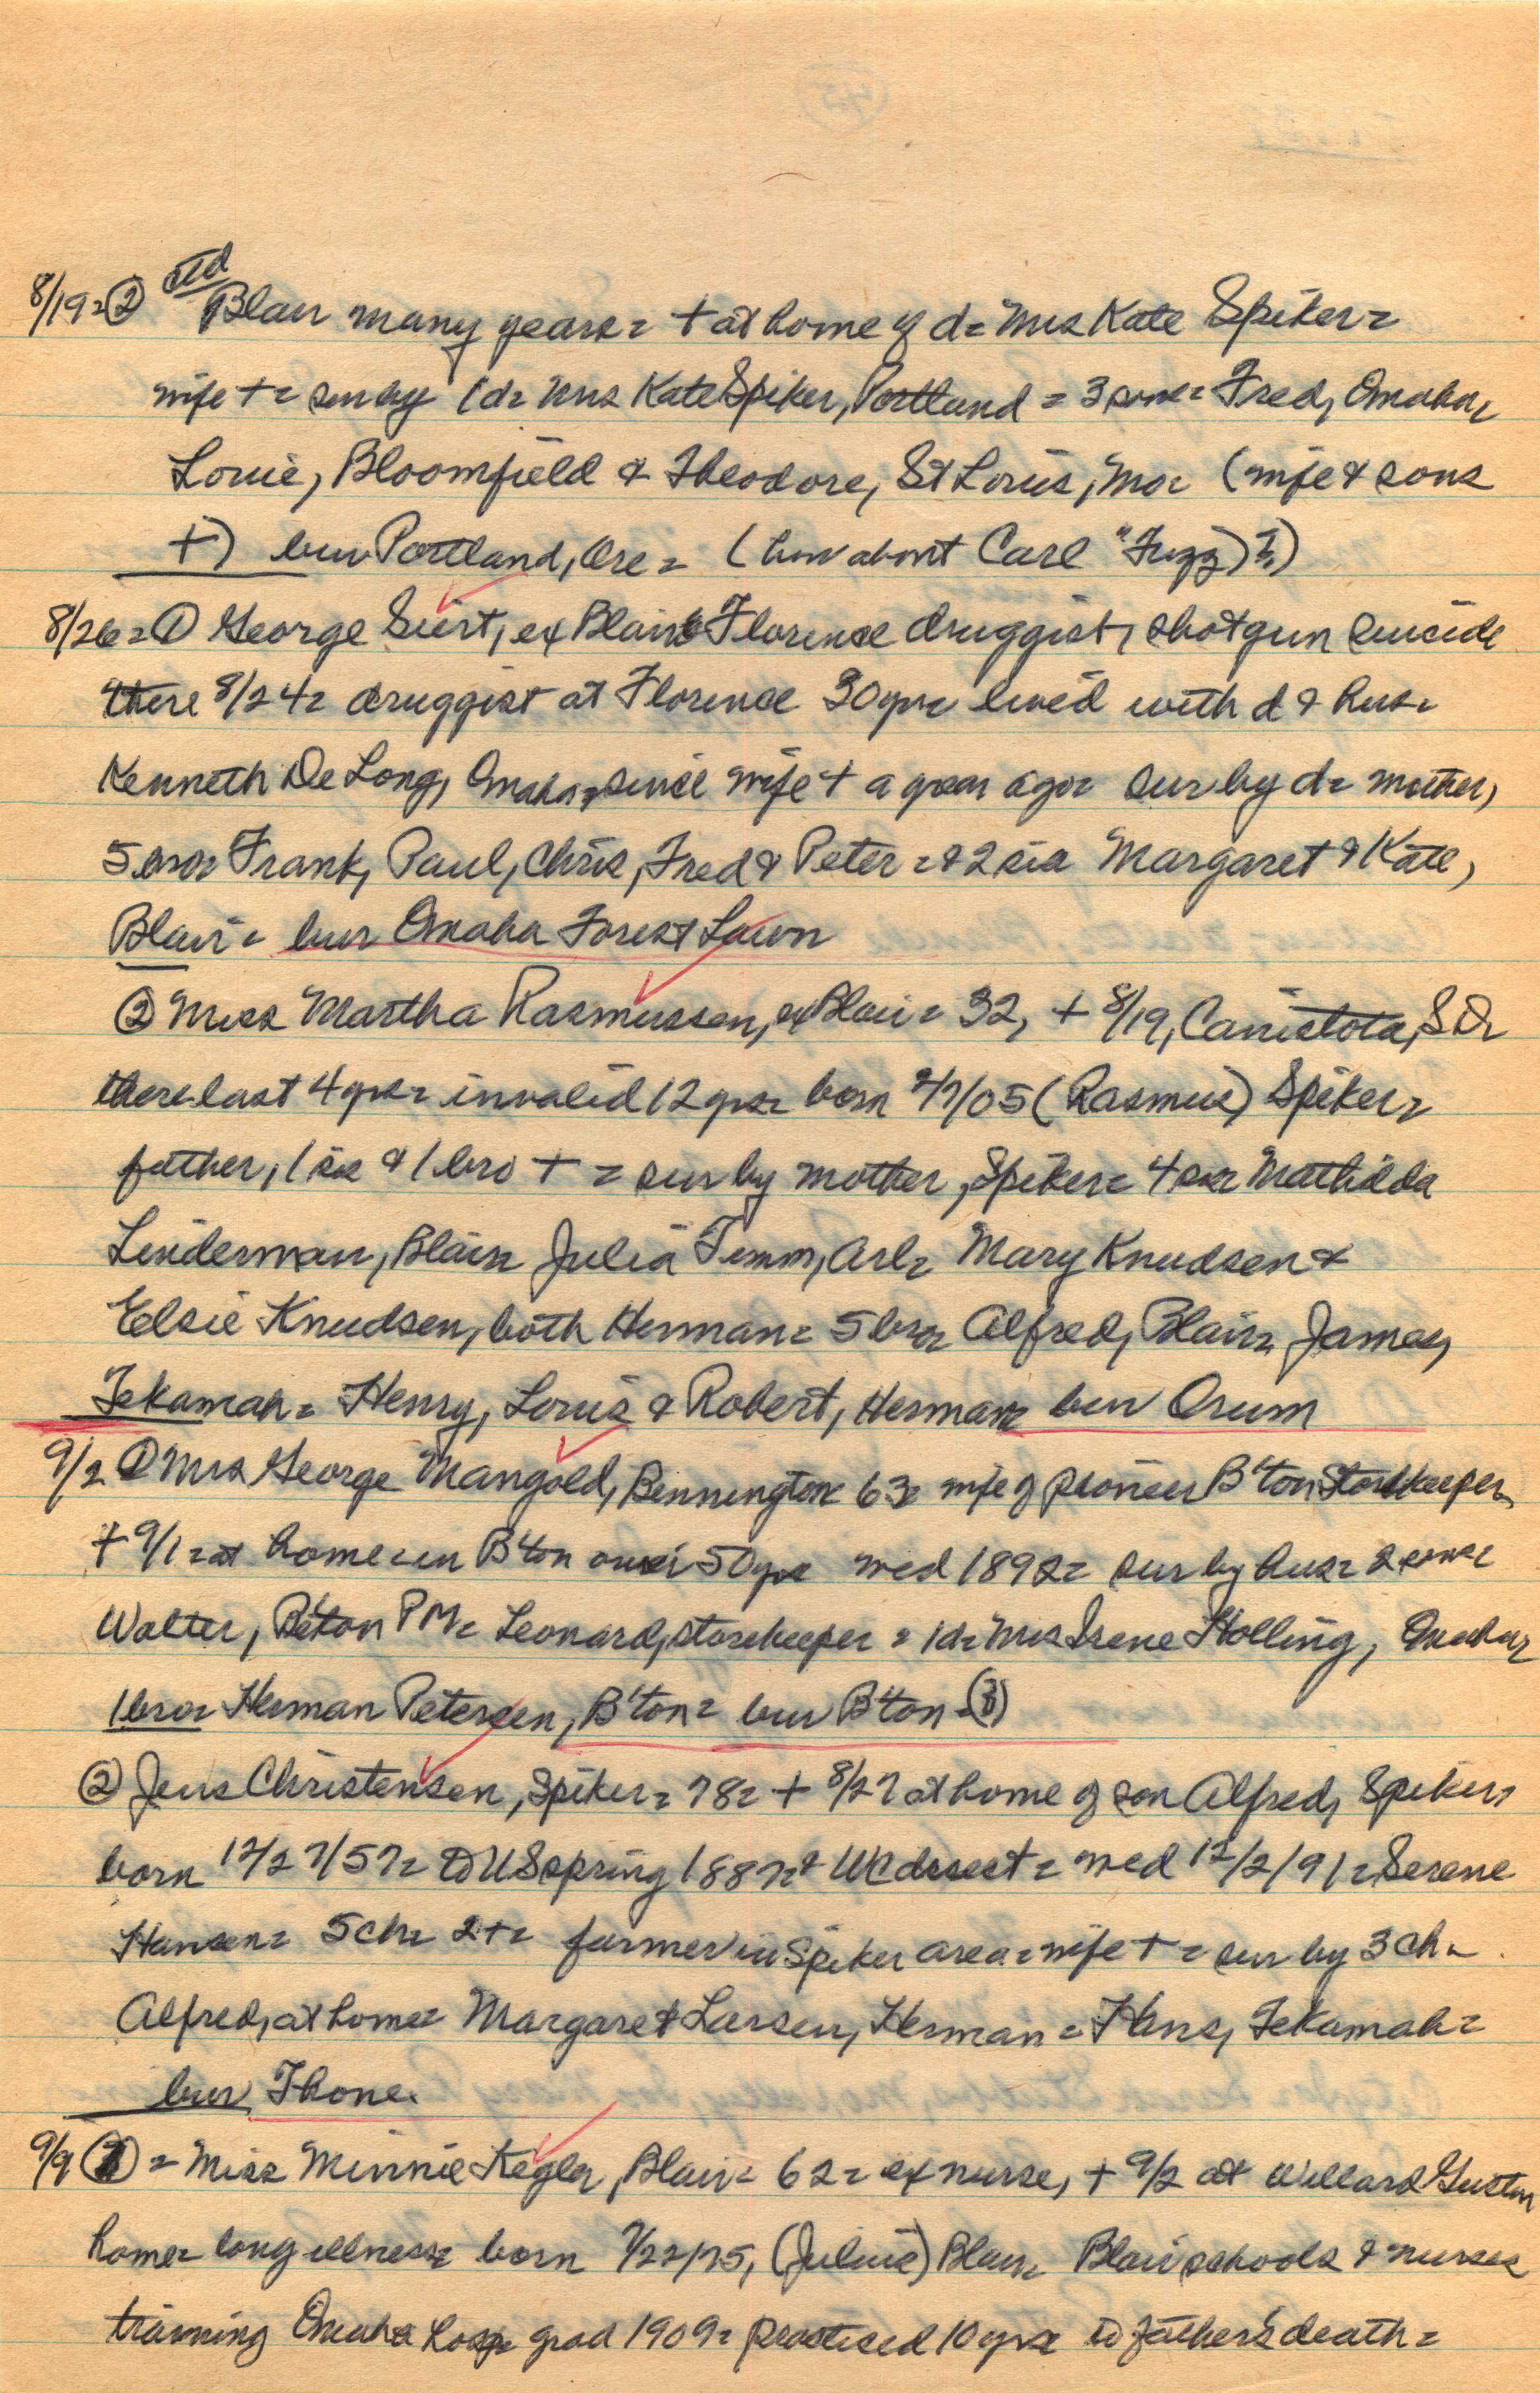 8/19 = ② ctd Blair many years = + at home of d = Mrs Kate Spiker =
wife + = sur by 1 d = Mrs Kate Spiker, Portland = 3 sons = Fred, Omaha,
Louie, Bloomfield & Theodore, St Louis, Mo = (wife & sons
+) bur Portland, Ore = (how about Carl "Fuzz)?)
8/26 = ① George Siert, ex Blair & Florence druggist, shotgun suicide
there 8/24 = druggist at Florence 30 yrs = lived with d & hus =
Kenneth De Long, Omaha, since wife + a year ago = sur by d = mother,
5 bro = Frank, Paul, Chris, Fred & Peter = & 2 sis Margaret & Kate,
Blair = bur Omaha Forest Lawn
② Miss Martha Rasmussen, ex Blair = 32, + 8/19, Canistota, S D =
there last 4 yrs = invalid 12 yrs = born /05 (Rasmus) Spiker =
father, 1 sis & 1 bro + = sur by mother, Spiker = 4 sis = Mathilda
Linderman, Blair = Julia Timm, Arl = Mary Knudsen &
Elsie Knudsen, both Herman = 5 bro = Alfred, Blair, James,
Tekamah = Henry, Louis & Robert, Herman = bur Orum
9/2 ① Mrs George Mangold, Bennington = 63 = wife of pioneer B'ton Storekeeper,
+ 9/1 = at home = in B'ton over 50 yrs med 1892 = sur by hus = 2 sons =
Walter, B'ton PM = Leonard, storekeeper = 1 d = Mrs Irene Holling, Omaha =
1 bro = Herman Petersen, B'ton = bur B'ton =
② Jens Christensen, Spiker = 78 = + 8/27 at home of son Alfred, Spiker,
born 12/27/57 = to US spring 1887 = & WC direct = med 12/2/91 = Serene
Hansen = 5 ch = 2 + = farmer in Spiker area = wife + = sur by 3 ch =
Alfred, at home = Margaret Larsen, Herman = Hans, Tekamah =
bur Thone.
9/9 ① = Miss Minnie Kegler, Blair = 62 = ex nurse, + 9/2 at Willard Gustin
home = long illness = born 7/22/75, (Julius) Blair = Blair schools & nurses
training Omaha hosp = grad 1909 = practiced 10 yrs = to father's death =